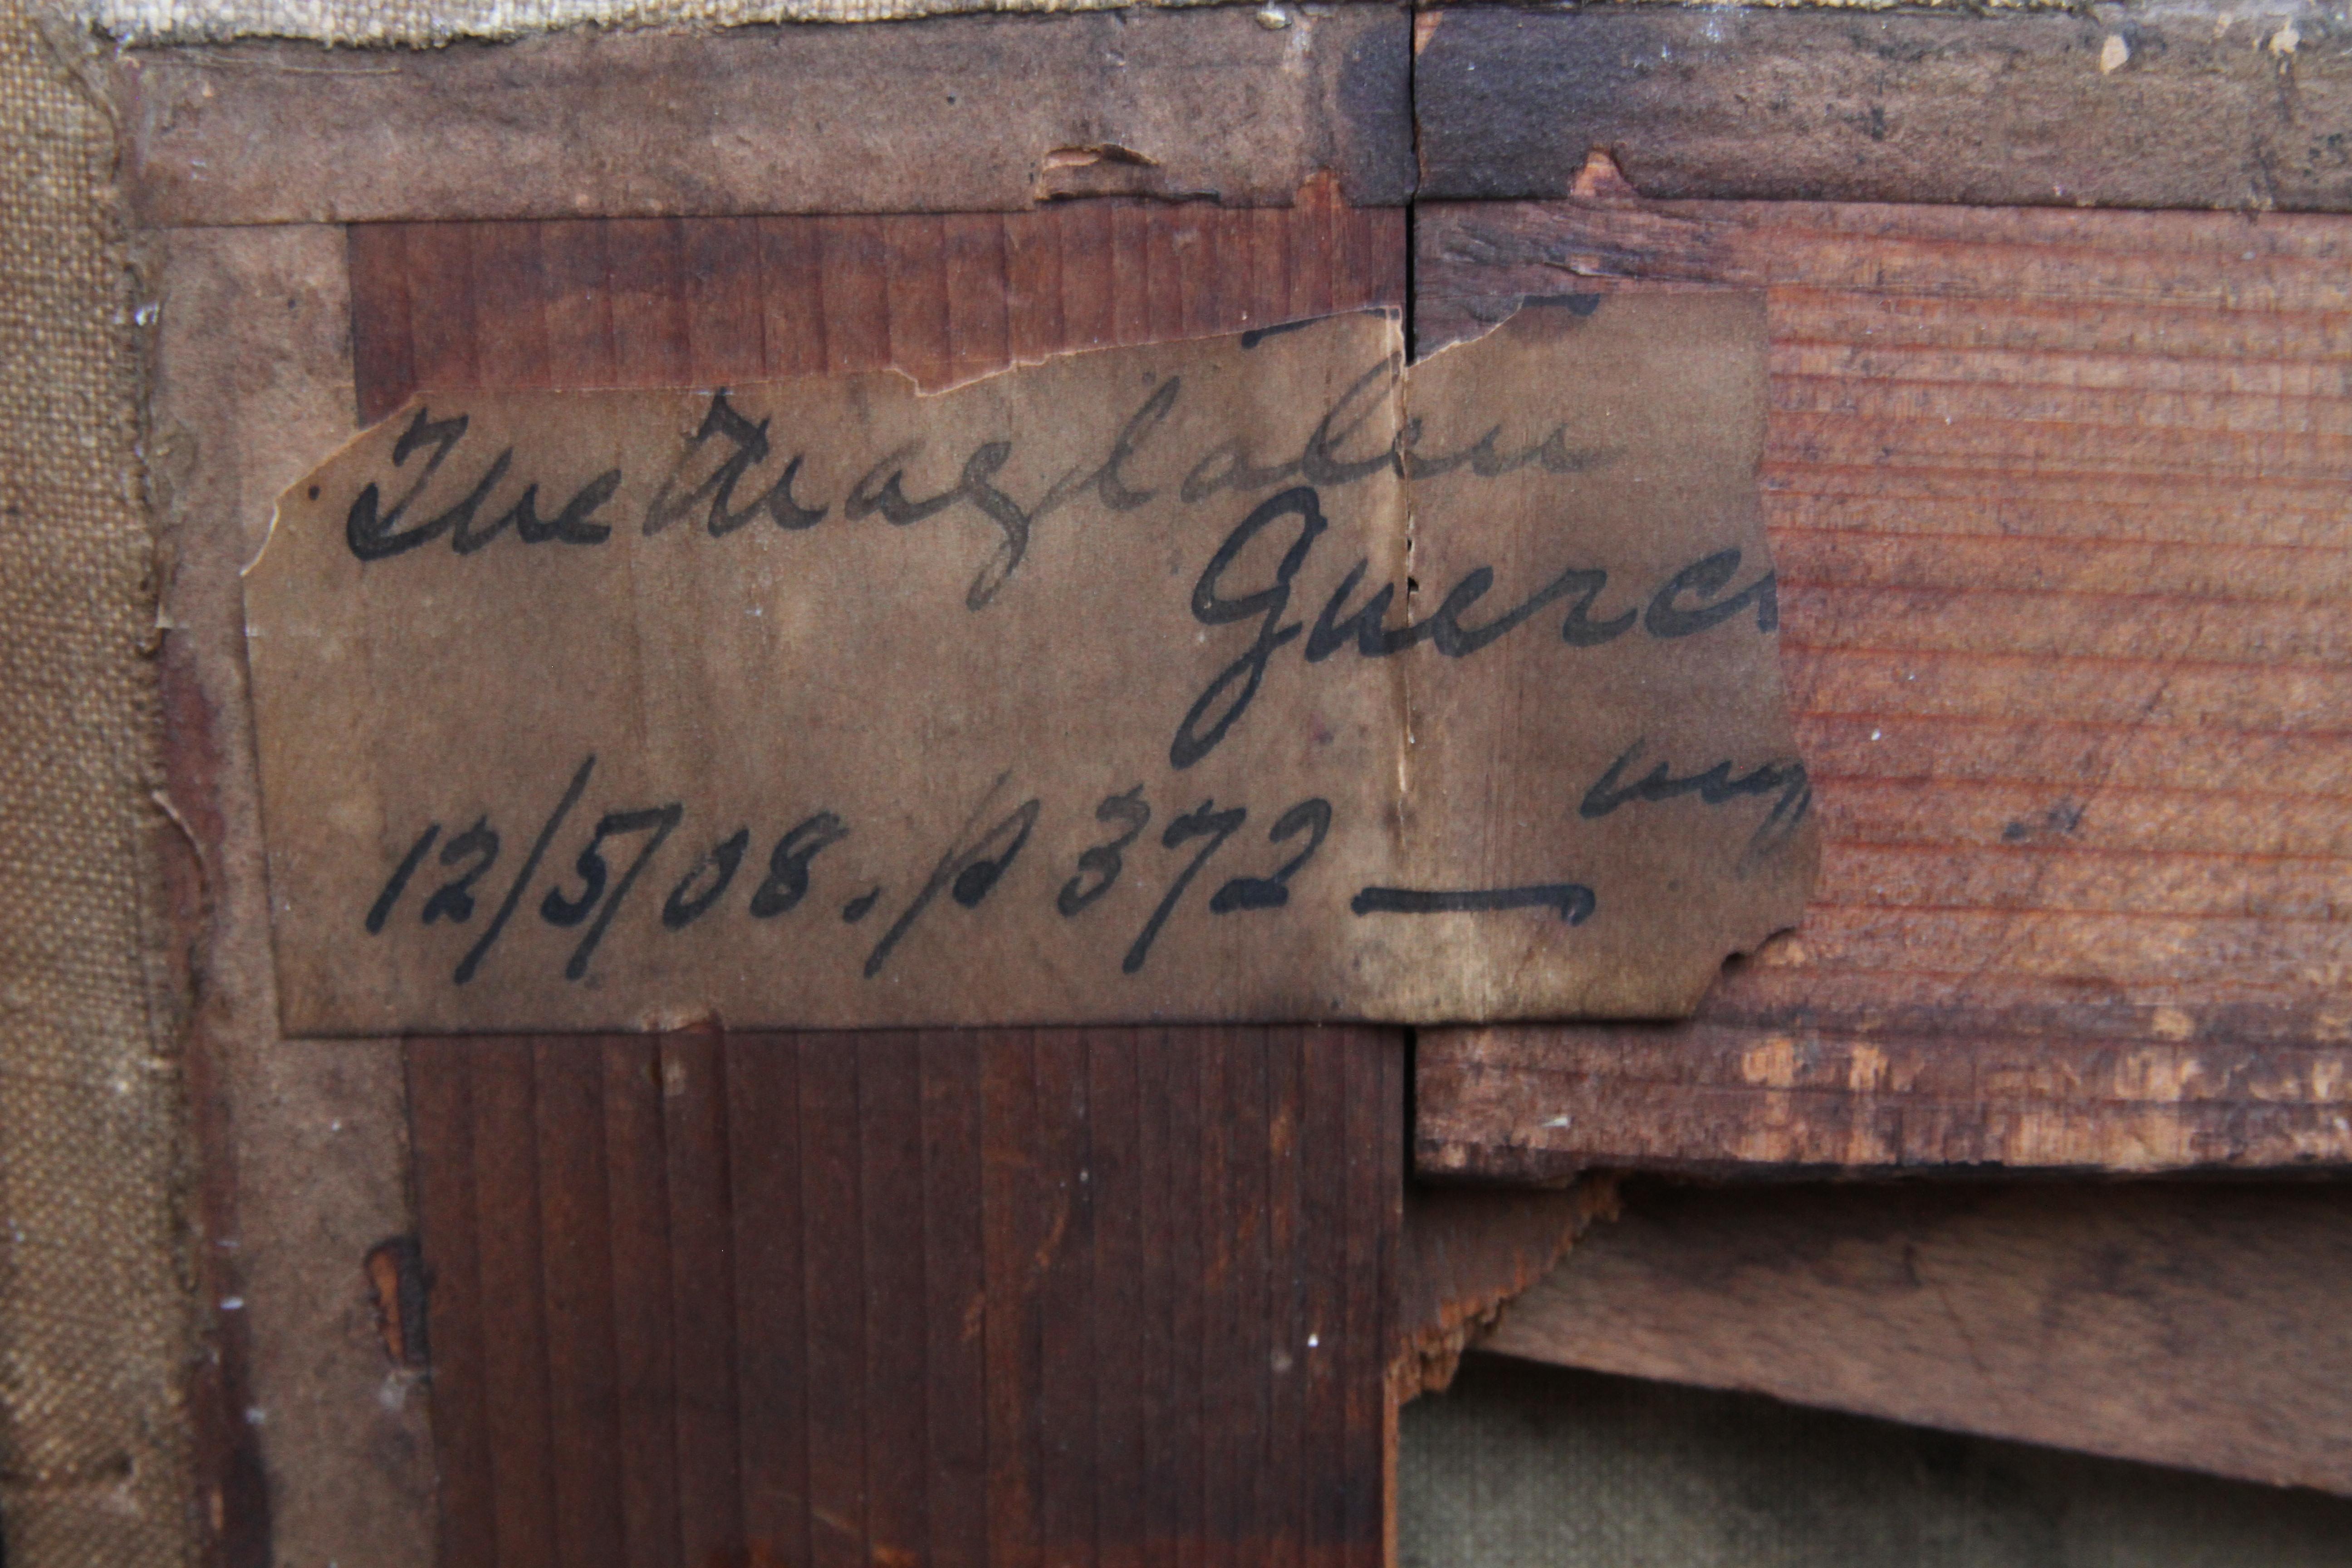 The Magdalen
Guerci
12/5/08. p 372 —